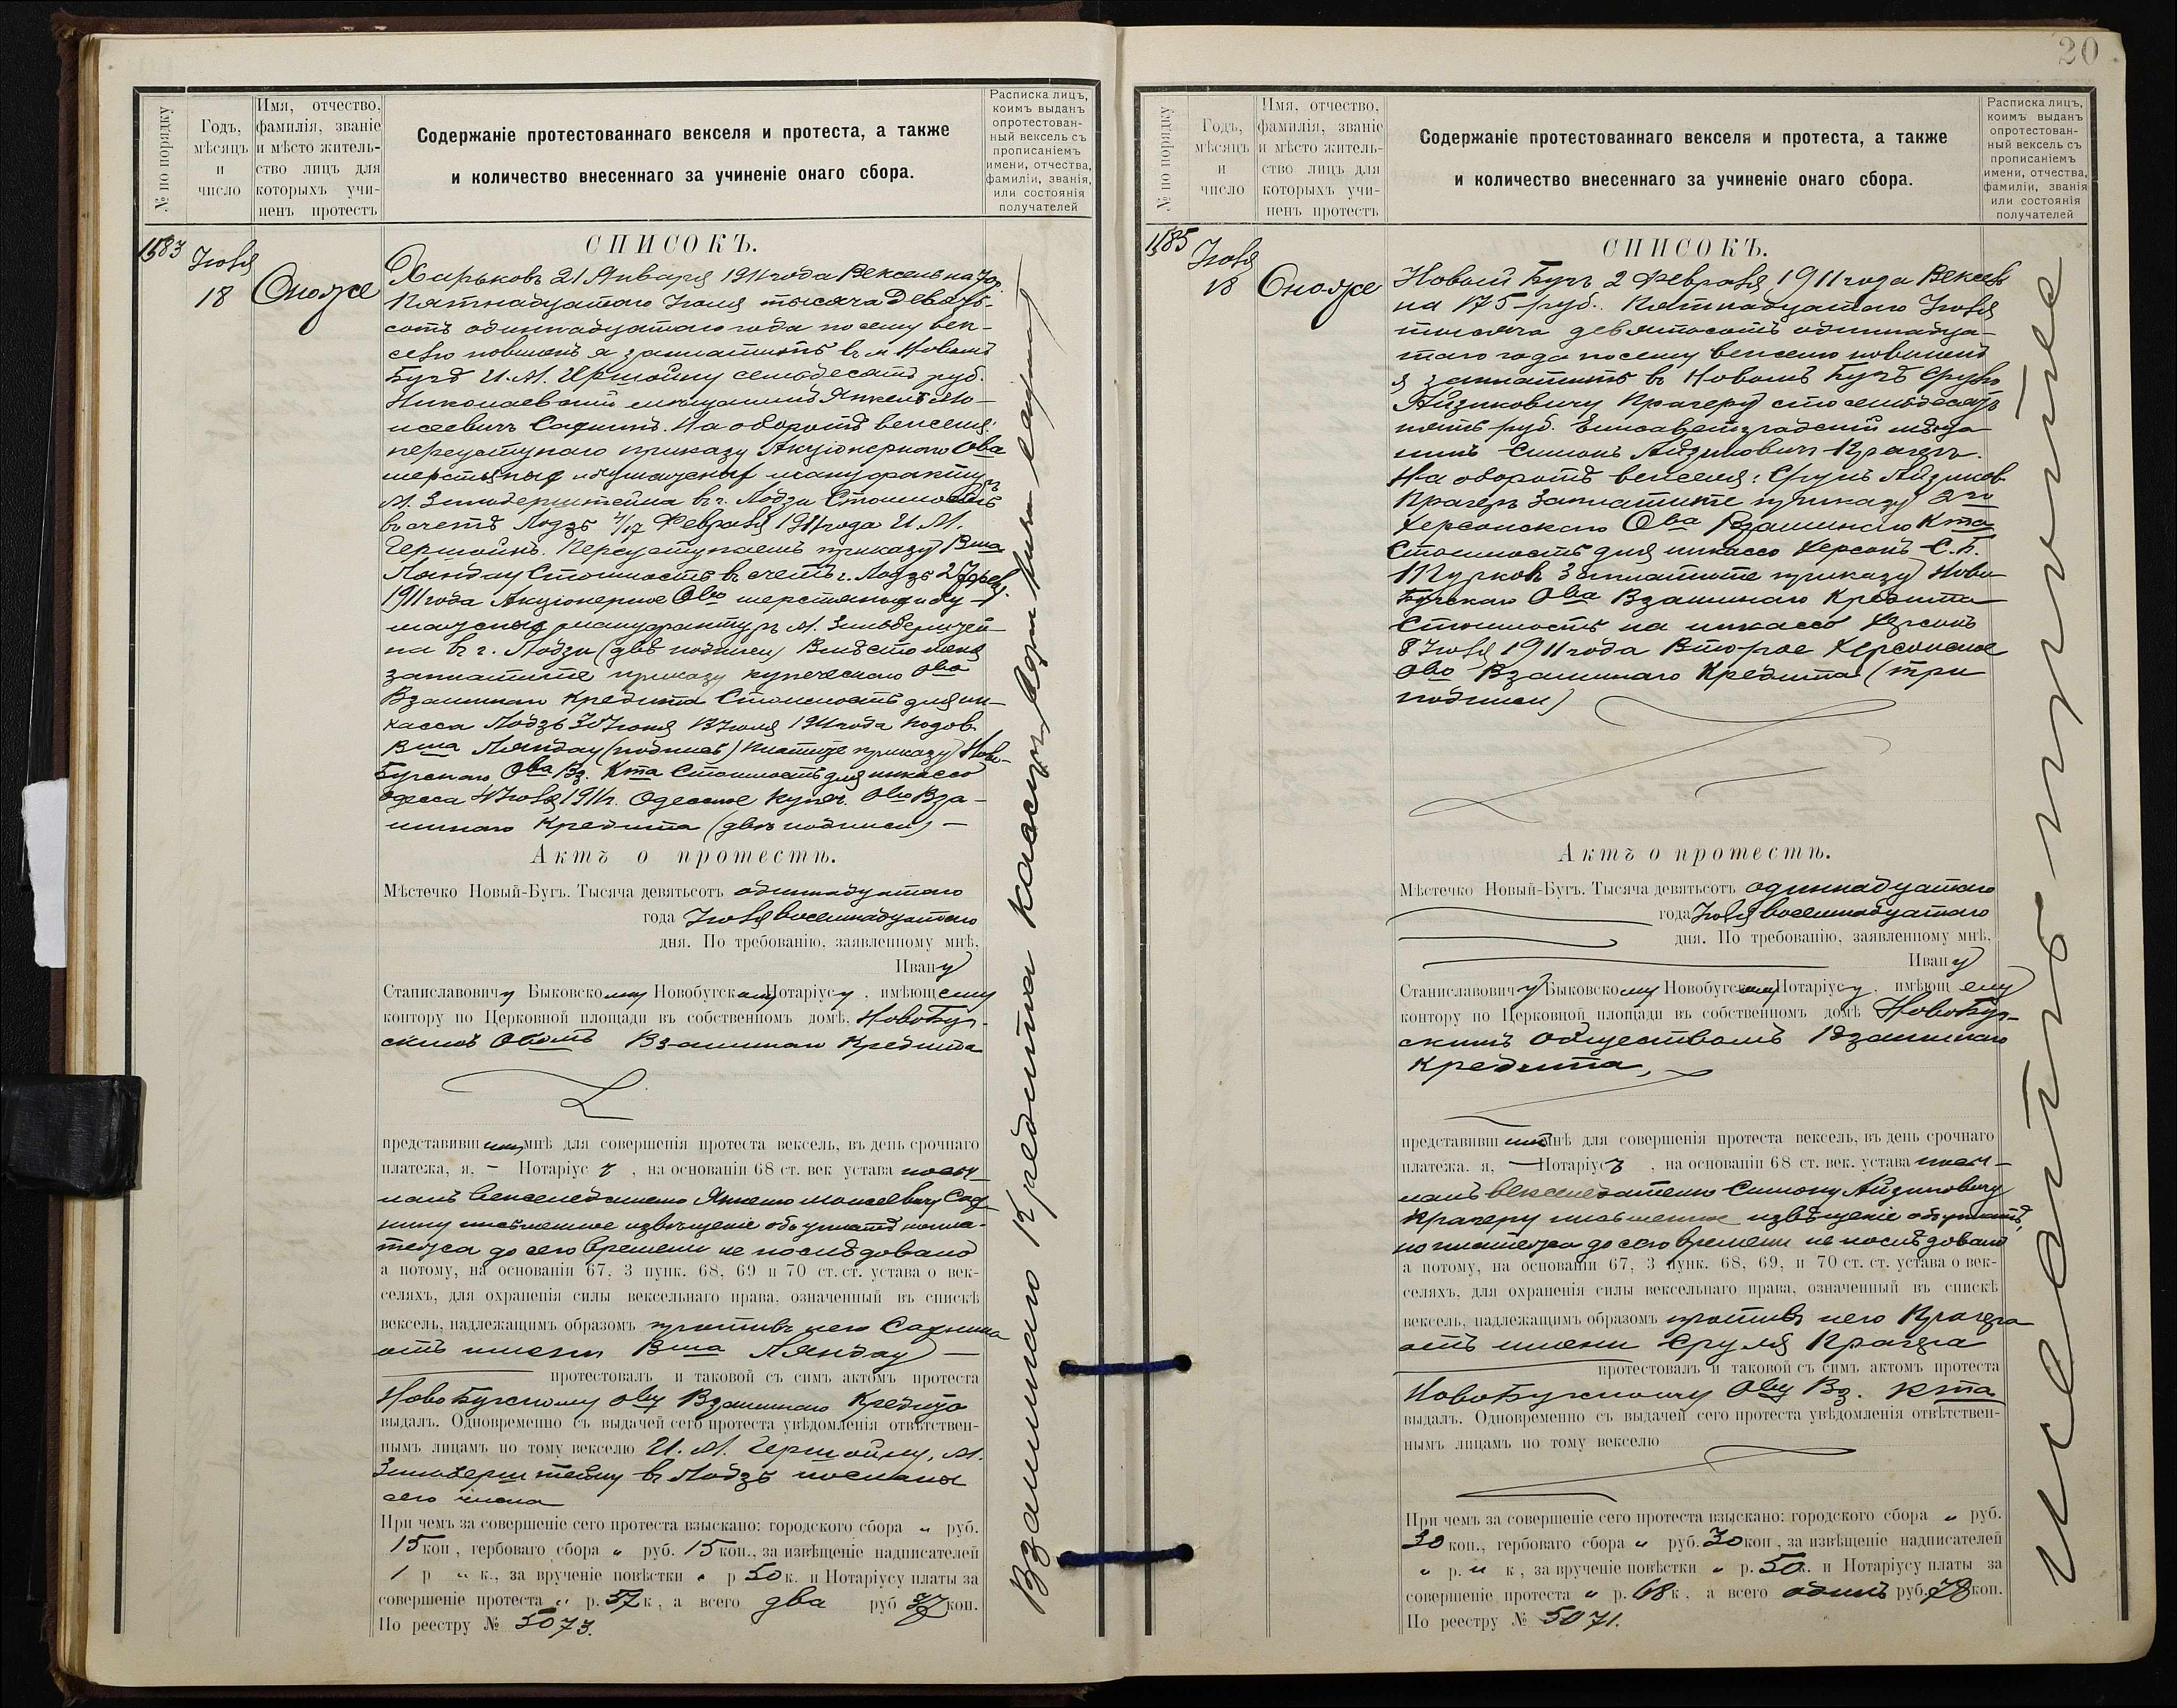 № по порядку
Годъ,
мѣсяцъ
и
число
Имя, отчество,
фамилія, званіе
и мѣсто житель-
ство лицъ для
которыхъ учи-
ненъ протестъ
Содержаніе протестованнаго векселя и протеста, а также
и количество внесеннаго за учиненіе онаго сбора.
Расписка лицъ,
коимъ выданъ
опротестован-
ный вексель съ
прописаніемъ
имени, отчества,
фамиліи, званія,
или состоянія
получателей
1583
Іюля
18
Оноже
СПИСОКЪ.
Харьковъ 21 Января 1911 года Вексель на 70 р.
Пятнадцатаго Іюля тысяча девять-
сотъ одиннадцатаго года по сему век-
селю повиненъ я заплатить въ м. Новомъ
Бугѣ И. М. Гершойну семьдесятъ руб.
Николаевскій мѣщанинъ Янкель Мо-
исеевичъ На оборотѣ векселя:
приказу Акціонернаго Ова
шерстяныхъ и бумажныхъ мануфактуръ
М. Зильберштейна въ г. Лодзи Стоимость
въ счетѣ Лодзь 4/17 Февраля 1911 года И. М.
Гершойнъ. приказу Вма
Ландау Стоимость въ счетѣ г. Лодзь
1911 года Акціонерное Ово шерстяныхъ и бу-
мажныхъ мануфактуръ М. Зильберштей-
на въ г. Лодзи (двѣ подписи) Вмѣсто меня
заплатите приказу купеческаго Ова
Взаимнаго Кредита Стоимость для ин-
касса Лодзь 30 Іюня 13 Іюля 1911 года
Вма Ландау (подпись) Платите приказу Ново-
Бугскаго Ова Вз. Кта Стоимость для инкассо
Одесса Іюля 1911 г. Одесское Купеч. Ово Вза-
имнаго Кредита (двѣ подписи) —
Актъ о протестѣ.
Мѣстечко Новый-Бугъ. Тысяча девятьсотъ одиннадцатаго
года Іюля восемнадцатаго
дня. По требованію, заявленному мнѣ,
Ивану
Станиславовичу Быковскому Новобугскому Нотаріусу, имѣющему
контору по Церковной площади въ собственномъ домѣ, Новобуг-
скимъ Овомъ Взаимнаго Кредита
представившимъ мнѣ для совершенія протеста вексель, въ день срочнаго
платежа, я, — Нотаріусъ, на основаніи 68 ст. век устава посы-
лалъ векселедателю Янкелю Моисеевичу
письменное извѣщеніе объ уплатѣ но пла-
тежа до сего времени не послѣдовало
а потому, на основаніи 67, 3 пунк. 68, 69 и 70 ст. ст. устава о век-
селяхъ, для охраненія силы вексельнаго права, означенный въ спискѣ
вексель, надлежащимъ образомъ противъ него
отъ имени Вма Ландау —
протестовалъ и таковой съ симъ актомъ протеста
НовоБугскому Ову Взаимнаго Кредита
выдалъ. Одновременно съ выдачей сего протеста увѣдомленія отвѣтствен-
нымъ лицамъ по тому векселю И. М. Гершойну, М.
Зильберштейну въ Лодзь посланы
сего числа
При чемъ за совершеніе сего протеста взыскано: городского сбора „ руб.
15 коп, гербоваго сбора „ руб. 15 коп., за извѣщеніе надписателей
1 р „ к., за врученіе повѣстки „ р 50 к. и Нотаріусу платы за
совершеніе протеста „ р. 57 к, а всего два руб 37 коп.
По реестру № 5073.
Взаимнаго Кредита
20
№ по порядку
Годъ,
мѣсяцъ
и
число
Имя, отчество,
фамилія, званіе
и мѣсто житель-
ство лицъ для
которыхъ учи-
ненъ протестъ
Содержаніе протестованнаго векселя и протеста, а также
и количество внесеннаго за учиненіе онаго сбора.
Расписка лицъ,
коимъ выданъ
опротестован-
ный вексель съ
прописаніемъ
имени, отчества,
фамиліи, званія
или состоянія
получателей
1585
Іюля
18
Оноже
СПИСОКЪ.
Новый Бугъ 2 Февраля 1911 года Вексель
на 175 руб. Пятнадцатаго Іюля
тысяча девятьсотъ одиннадца-
таго года по сему векселю повиненъ
я заплатить въ Новомъ Бугѣ Срулю
Айзиковичу Крачеру сто семьдесятъ
пять руб. Елисаветградскій мѣща
нинъ Симонъ Айзиковичъ Крачеръ.
На оборотѣ векселя: Сруль Айзиков
Крачеръ Заплатите приказу 2го
Херсонскаго Ова Взаимнаго Кта
Стоимость для инкассо Херсонъ С. Б.
Заплатите приказу Ново
Бугскаго Ова Взаимнаго Кредита
Стоимость на инкассо Херсонъ
8 Іюля 1911 года Второе Херсонское
Ово Взаимнаго Кредита (три
подписи)
Актъ о протестѣ.
Мѣстечко Новый-Бугъ. Тысяча девятьсотъ одиннадцатаго
года Іюля восемнадцатаго
дня. По требованію, заявленному мнѣ,
Ивану
Станиславовичу Быковскому Новобугскому Нотаріусу, имѣющему
контору по Церковной площади въ собственномъ домѣ НовоБуг-
скимъ Обществомъ Взаимнаго
Кредита,
представившимъ мнѣ для совершенія протеста вексель, въ день срочнаго
платежа. я, — Нотаріусъ, на основаніи 68 ст. век. устава посы-
лалъ векселедателю Симону Айзиковичу
Крачеру письменное извѣщеніе объ уплатѣ,
но платежа до сего времени не послѣдовало
а потому, на основаніи 67, 3 пунк. 68, 69, и 70 ст. ст. устава о век-
селяхъ, для охраненія силы вексельнаго права, означенный въ спискѣ
вексель, надлежащимъ образомъ противъ него Крачера
отъ имени Сруля Крачера
протестовалъ и таковой съ симъ актомъ протеста
НовоБугскому Ову Вз. Кта
выдалъ. Одновременно съ выдачей сего протеста увѣдомленія отвѣтствен-
нымъ лицамъ по тому векселю
При чемъ за совершеніе сего протеста взыскано: городского сбора „ руб.
30 коп., гербоваго сбора „ руб. 30 коп, за извѣщеніе надписателей
„ р. „ к, за врученіе повѣстки „ р. 50 к. и Нотаріусу платы за
совершеніе протеста „ р. 68 к, а всего одинъ руб. 78 коп.
По реестру № 5071.